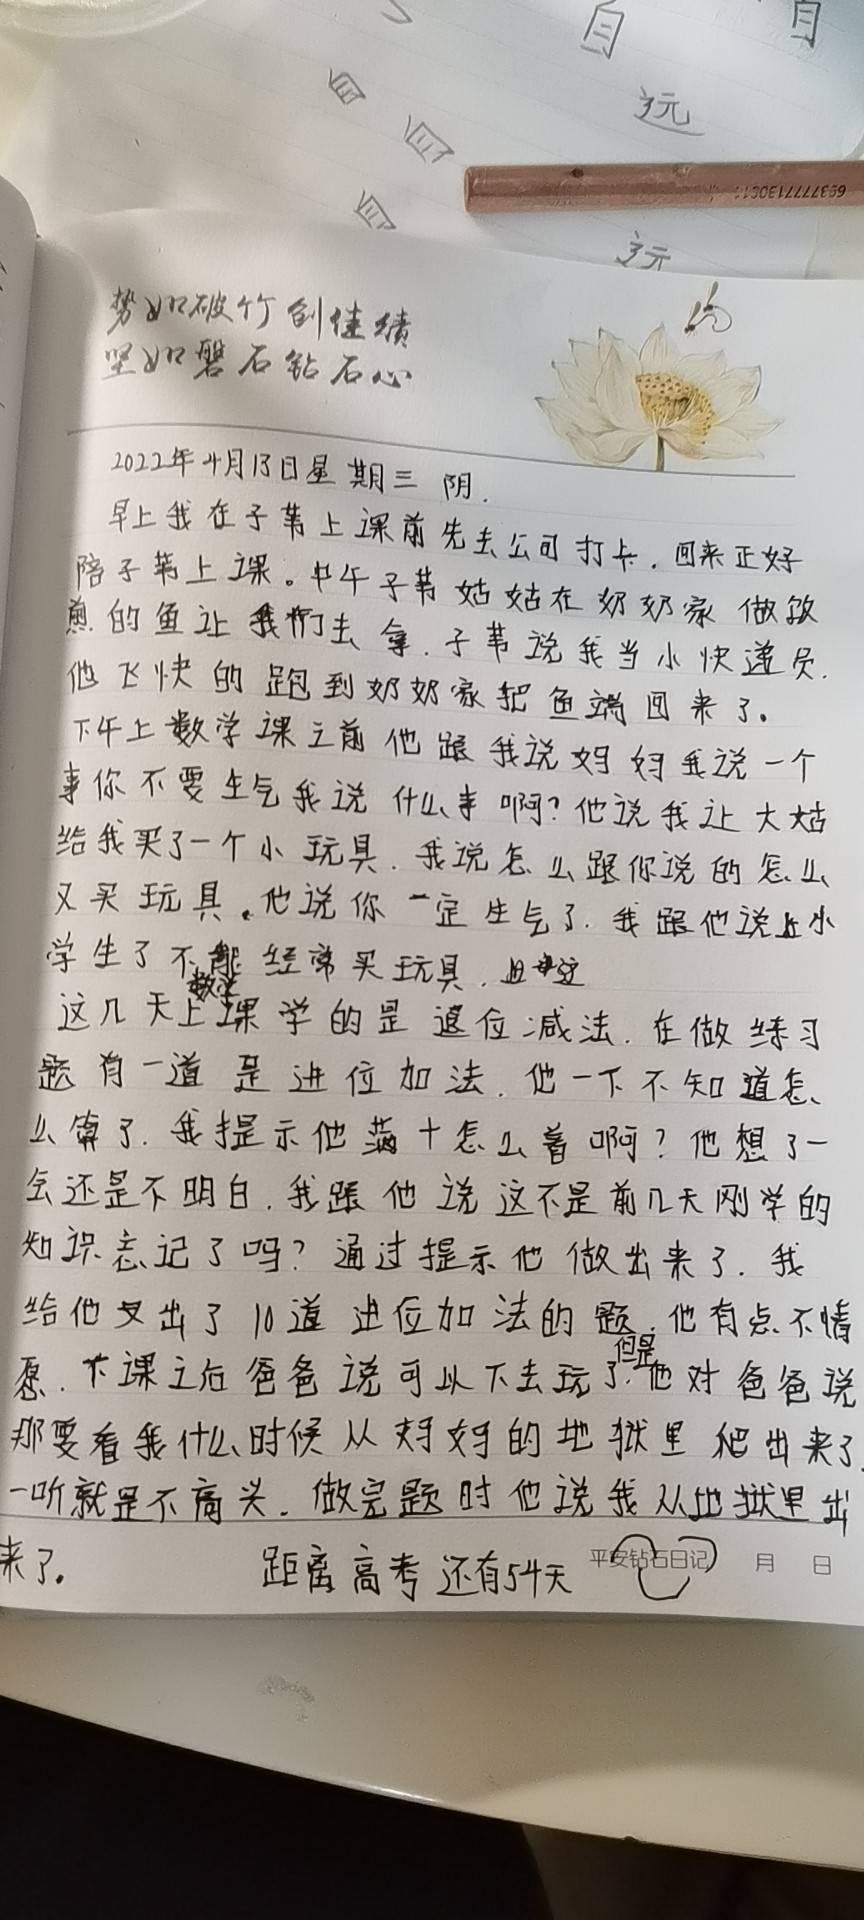 自
自
自
远
自
自
6937777130614
远
势如破竹创佳绩
坚如磐石钻石心
2022年4月13日星期三 阴.
早上我在子苇上课前先去公司打卡.回来正好
陪子苇上课。中午子苇姑姑在奶奶家做
煎的鱼让我们去拿.子苇说我当小快递员.
他飞快的跑到奶奶家把鱼端回来了。
下午上数学课之前他跟我说妈妈我说一个
事你不要生气我说什么事啊?他说我让大姑
给我买了一个小玩具.我说怎么跟你说的怎么
又买玩具.他说你一定生气了.我跟他说上小
学生了不能经常买玩具.
这几天上数学课学的是退位减法.在做练习
题有一道是进位加法.他一下不知道怎
么算了.我提示他满十怎么着啊?他想了一
会还是不明白.我跟他说这不是前几天刚学的
知识忘记了吗?通过提示他做出来了.我
给他又出了10道进位加法的题.他有点不情
愿.下课之后爸爸说可以下去玩了.但是他对爸爸说
那要看我什么时候从妈妈的地狱里爬出来了.
一听就是不高兴.做完题时他说我从地狱里出
来了。
距离高考还有54天
平安钻石日记 月 日